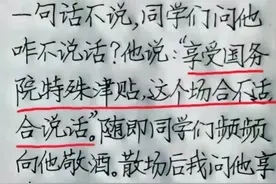 一句话不说，同学们问他
咋不说话？他说：“享受国务
院特殊津贴，这个场合不适
合说话”。随即同学们频频
向他敬酒。散场后我问他享